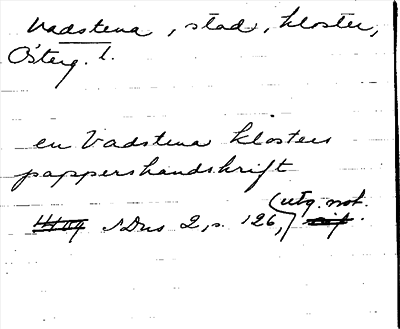 Vadstena, stad, kloster,
Österg. l.
en Vadstena klosters
pappershandskrift
SDns 2, s. 126, (utg. not.